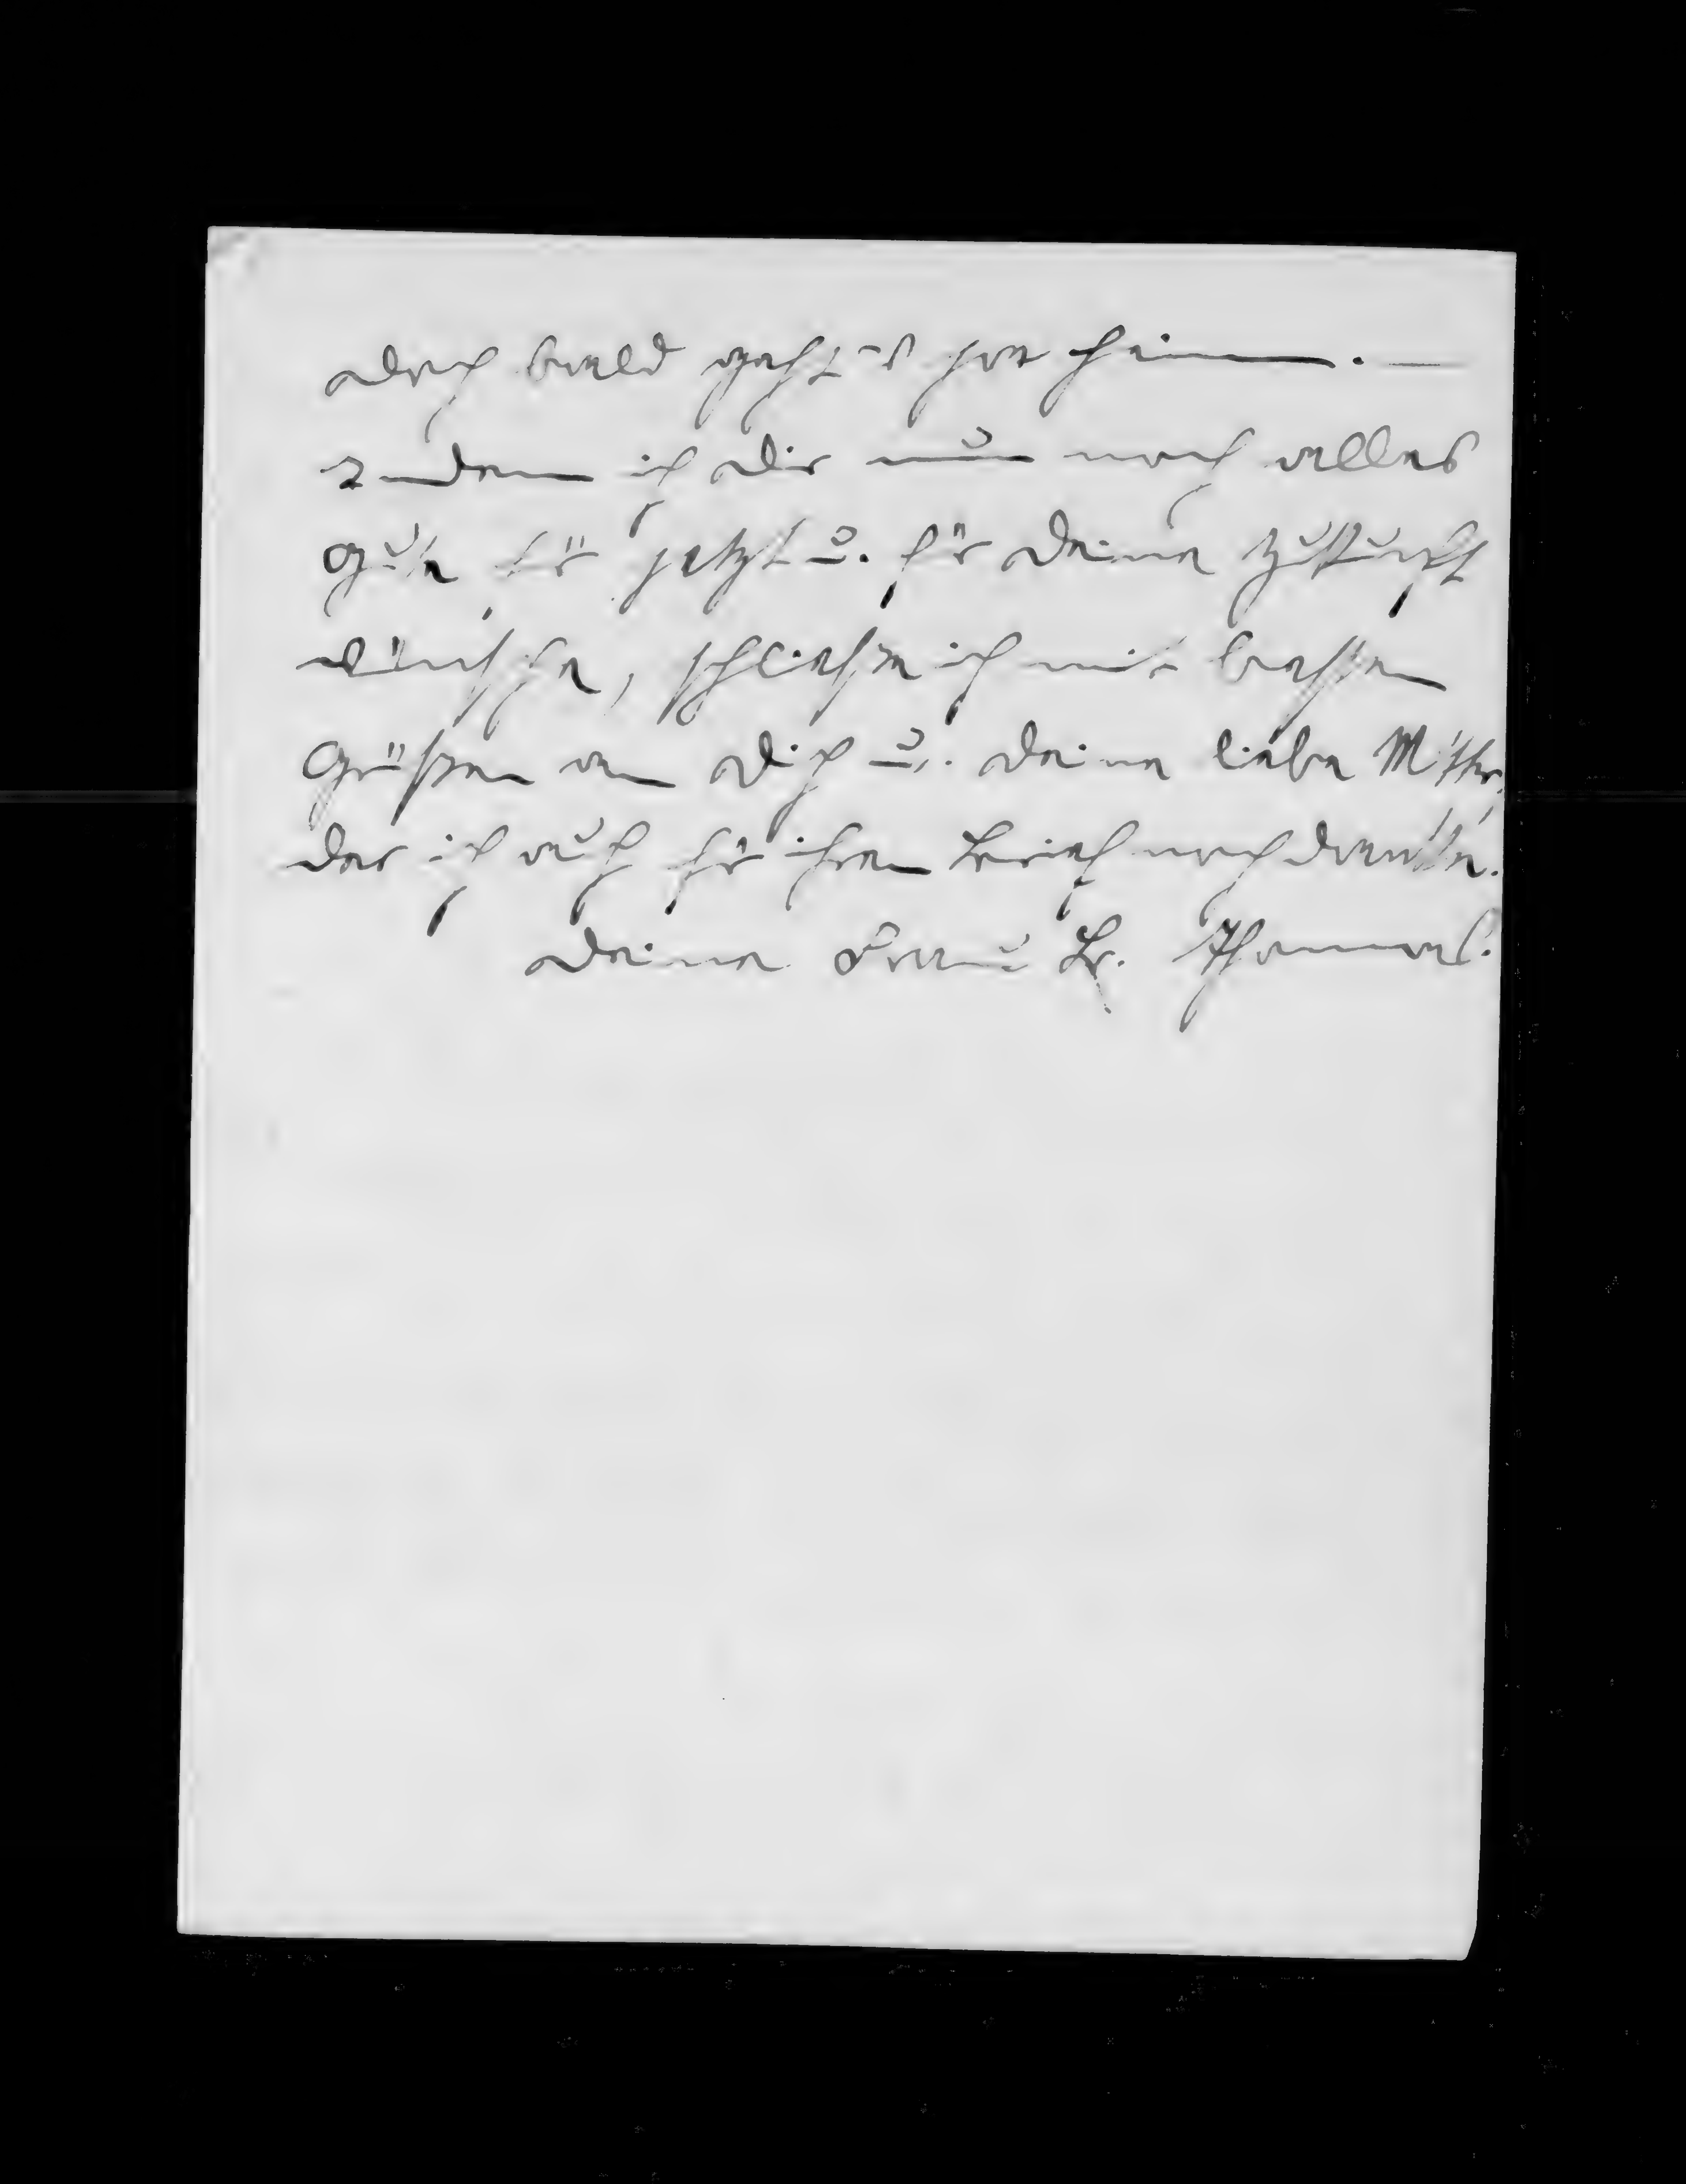 doch bald geht's ja heim. —
Indem ich Dir nun noch alles
Gute für jetzt u. für Deine Zukunft
wünsche, schließe ich mit besten
Grüßen an Dich u. Deine liebe Mutter,
der ich auch für ihren Brief noch danke.
Deine Frau Br. Thomas.